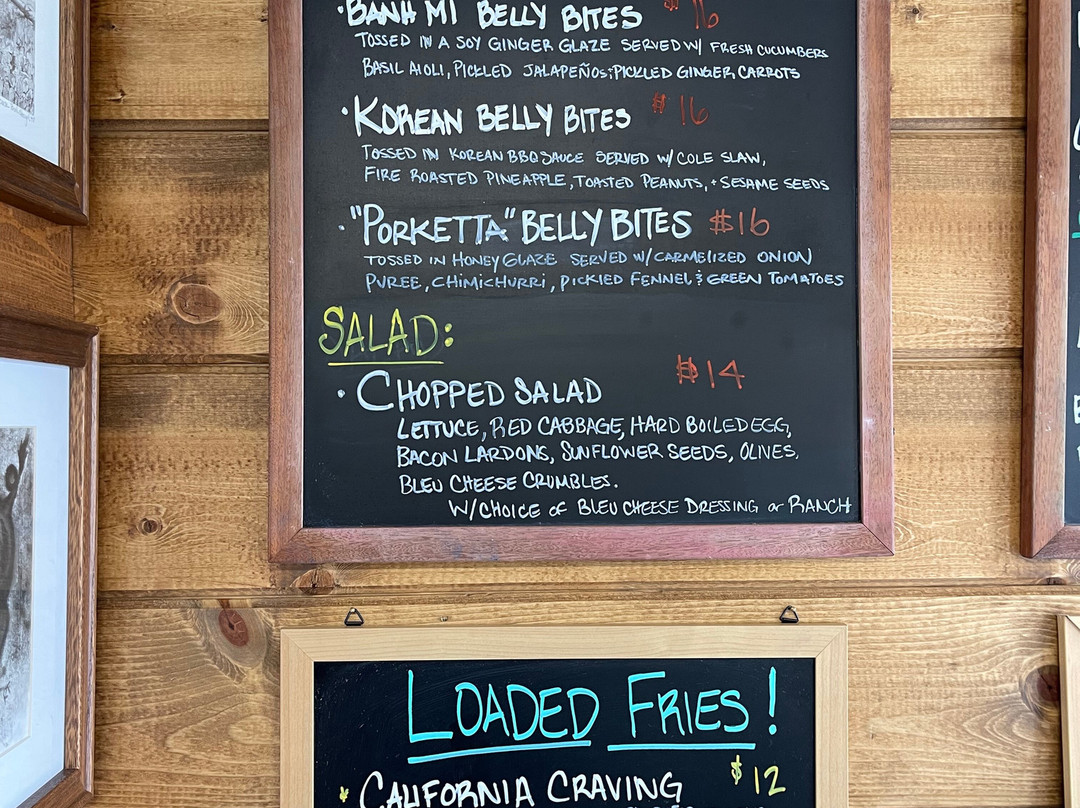 · BANH MI BELLY BITES $16
TOSSED IN A SOY GINGER GLAZE SERVED W/ FRESH CUCUMBERS
BASIL AIOLI, PICKLED JALAPEÑOS; PICKLED GINGER CARROTS
· KOREAN BELLY BITES $16
TOSSED IN KOREAN BBQ SAUCE SERVED W/ COLE SLAW,
FIRE ROASTED PINEAPPLE, TOASTED PEANUTS, + SESAME SEEDS
· "PORKETTA" BELLY BITES $16
TOSSED IN HONEY GLAZE SERVED W/ CARMELIZED ONION
PUREE, CHIMICHURRI, PICKLED FENNEL & GREEN TOMATOES
SALAD:
· CHOPPED SALAD $14
LETTUCE, RED CABBAGE, HARD BOILED EGG,
BACON LARDONS, SUNFLOWER SEEDS, OLIVES,
BLEU CHEESE CRUMBLES.
W/CHOICE OF BLEU CHEESE DRESSING or RANCH
LOADED FRIES!
* CALIFORNIA CRAVING $12